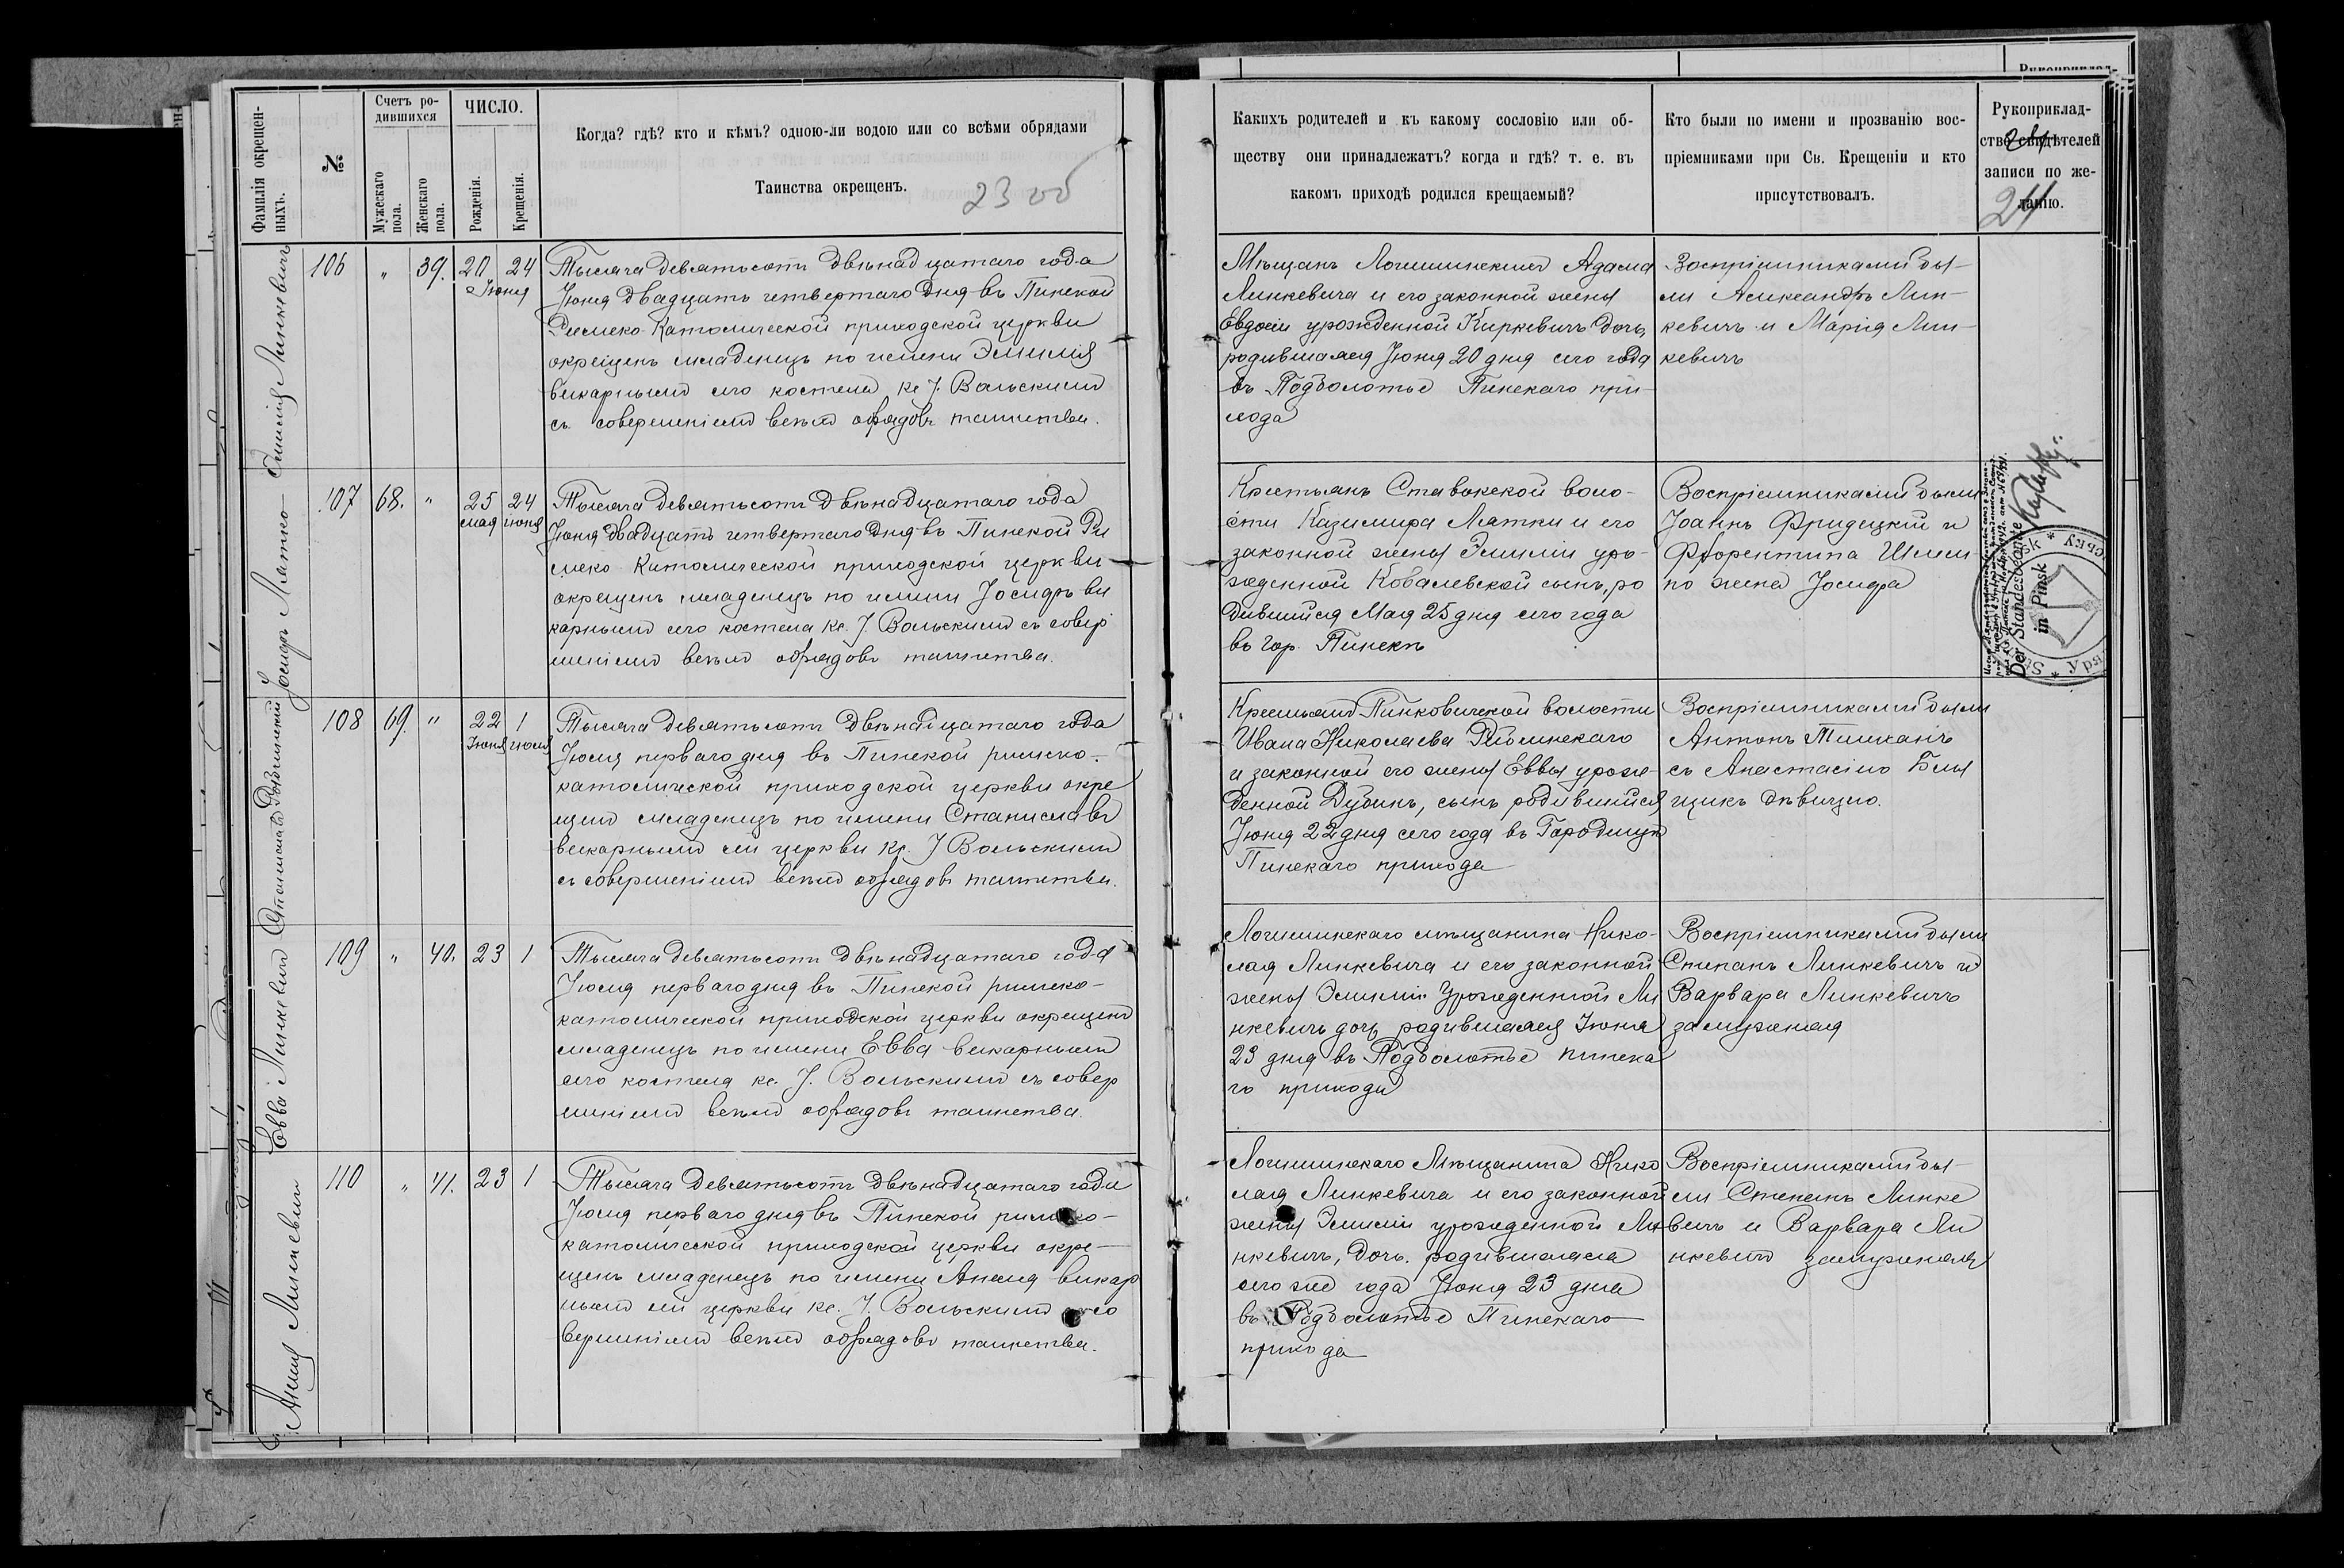 Фамилія окрещен-
ныхъ.
№
Счетъ ро-
дившихся
Мужескаго
пола.
Женскаго
пола.
ЧИСЛО.
Рожденія.
Крещенія.
Когда? гдѣ? кто и кѣмъ? одною-ли водою или со всѣми обрядами
Таинства окрещенъ.
23 об
Какихъ родителей и къ какому сословію или об-
ществу они принадлежатъ? когда и гдѣ? т. е. въ
какомъ приходѣ родился крещаемый?
Кто были по имени и прозванію вос-
пріемниками при Св. Крещеніи и кто
присутствовалъ.
Рукоприклад-
ство свидѣтелей
записи по же-
ланію.
24
Эмилія Линкевичъ
106 " 39. 20 24
Июня
Тысяча девятьсотъ двѣнадцатаго года
Іюня двадцать четвертаго дня въ Пинской
Римско-Католической приходской церкви
окрещенъ младенецъ по имени Эмилія
викарнымъ сего костела кс. І. Вольскимъ
съ совершеніемъ всѣхъ обрядовъ таинства.
Мѣщанъ Логишинскихъ Адама
Линкевича и его законной жены
Евдосіи урожденной Киркевичъ дочь,
родившаяся Іюня 20 дня сего года
въ Подболотье Пинскаго при-
хода
Воспріемниками бы-
ли Александръ Лин-
кевичъ и Марія Лин-
кевичъ
Іосифъ Мятко
107 68. " 25 24
мая іюня
Тысяча девятьсотъ двѣнадцатаго года
Іюня двадцать четвертаго дня въ Пинской Ри
мско Католической приходской церкви
окрещенъ младенецъ по имени Іосифъ ви
карнымъ сего костела кс. І. Вольскимъ съ совер
шеніемъ всѣхъ обрядовъ таинства.
Крестьянъ Ставокской воло-
сти Казимира Мятки и его
законной жены Эмиліи уро-
жденной Ковалевской сынъ, ро
дившийся Мая 25 дня сего года
въ гор. Пинскѣ
Воспріемниками были
Іоаннъ Фридецкій и
Флорентина
по жена Іосифа
Der Standesbeamte
in Pinsk
Станиславъ
108 69. " 22 1
Іюня іюля
Тысяча девятьсотъ двѣнадцатаго года
Іюля перваго дня въ Пинской римско-
католической приходской церкви окре
щенъ младенецъ по имени Станиславъ
викарнымъ сей церкви кс. І Вольскимъ
съ совершеніемъ всѣхъ обрядовъ таинства.
Крестьянъ Пинковичской волости
Ивана Николаева
и законной его жены Еввы урож-
денной Дубикъ, сынъ родившийся
Іюня 22 дня сего года въ Городищѣ
Пинскаго прихода
Воспріемниками были
Антонъ
съ Анастасіею
щикъ дѣвицею.
Евва Линкевичъ
109 " 40. 23 1
Тысяча девятьсотъ двѣнадцатаго года
Іюля перваго дня въ Пинской римско-
католической приходской церкви окрещенъ
младенецъ по имени Евва викарнымъ
сего костела кс. І. Вольскимъ съ совер
шеніемъ всѣхъ обрядовъ таинства.
Логишинскаго мѣщанина Нико-
лая Линкевича и его законной
жены Эмиліи Урожденной Ли
нкевичъ дочь родившаяся Іюня
23 дня въ Подболотье пинска
го прихода
Воспріемниками были
Степанъ Линкевичъ и
Варвара Линкевичъ
замужняя
Анеля Линкевичъ
110 " 41. 23 1
Тысяча девятьсотъ двѣнадцатаго года
Іюля перваго дня въ Пинской римско-
католической приходской церкви окре-
щенъ младенецъ по имени Анеля викар
нымъ сей церкви кс. І. Вольскимъ съ со
вершеніемъ всѣхъ обрядовъ таинства.
Логишинскаго Мѣщанина Нико
лая Линкевича и его законной
жены Эмиліи урожденной Ли
нкевичъ, дочь. родившаяся
сего же года Іюня 23 дня
въ Подболотье Пинскаго
прихода
Воспріемниками бы-
ли Степанъ Линке
вичъ и Варвара Ли
нкевичъ замужняя